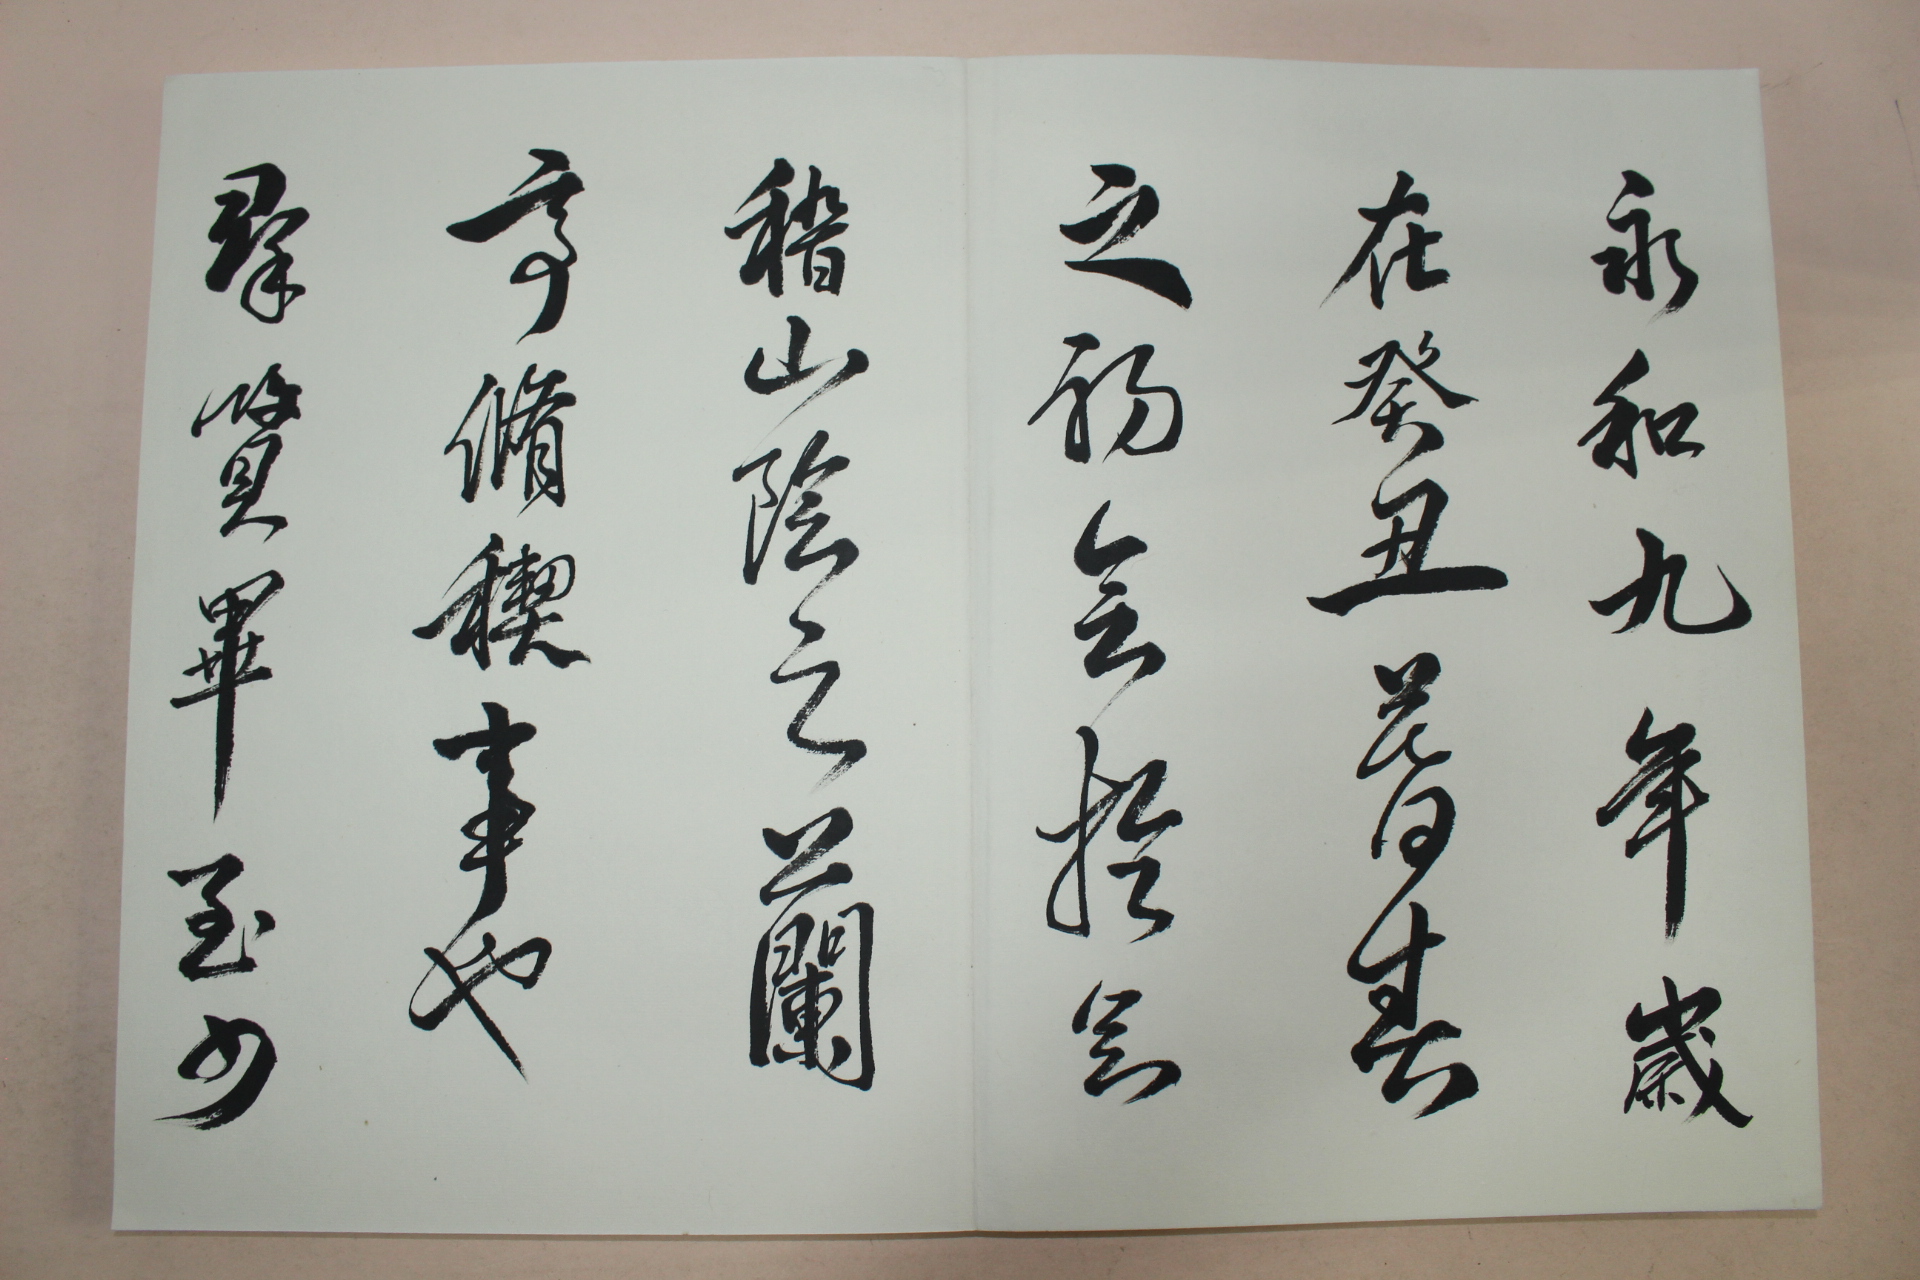 永和九年歲
在癸丑暮春
之初會於會
稽山陰之蘭
亭脩稧事也
羣賢畢至少